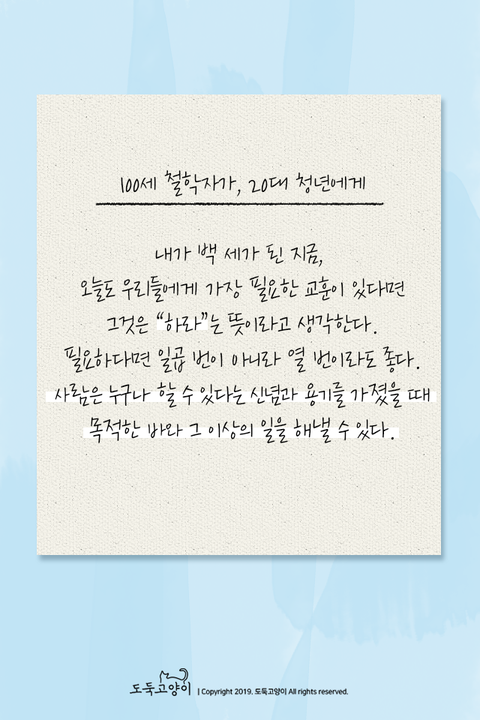 100세 철학자가, 20대 청년에게
내가 백 세가 된 지금,
오늘도 우리들에게 가장 필요한 교훈이 있다면
그것은 “하라”는 뜻이라고 생각한다.
필요하다면 일곱 번이 아니라 열 번이라도 좋다.
사람은 누구나 할 수 있다는 신념과 용기를 가졌을 때
목적한 바와 그 이상의 일을 해낼 수 있다.
도둑고양이 | Copyright 2019. 도둑고양이 All rights reserved.